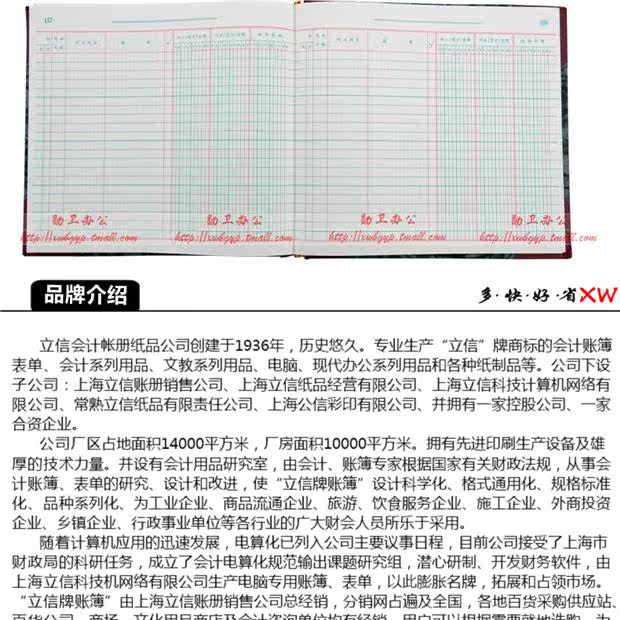 137
138
勋卫办公 勋卫办公 勋卫办公 勋卫办公
http://xwbgyp.tmall.com http://xwbgyp.tmall.com http://xwbgyp.tmall.com http://xwbgyp.tmall.com
品牌介绍
多·快·好·省XW
立信会计帐册纸品公司创建于1936年，历史悠久。专业生产“立信”牌商标的会计账簿
表单、会计系列用品、文教系列用品、电脑、现代办公系列用品和各种纸制品等。公司下设
子公司：上海立信账册销售公司、上海立信纸品经营有限公司、上海立信科技计算机网络有
限公司、常熟立信纸品有限责任公司、上海公信彩印有限公司、并拥有一家控股公司、一家
合资企业。
公司厂区占地面积14000平方米，厂房面积10000平方米。拥有先进印刷生产设备及雄
厚的技术力量。并设有会计用品研究室，由会计、账簿专家根据国家有关财政法规，从事会
计账簿、表单的研究、设计和改进，使“立信牌账簿”设计科学化、格式通用化、规格标准
化、品种系列化、为工业企业、商品流通企业、旅游、饮食服务企业、施工企业、外商投资
企业、乡镇企业、行政事业单位等各行业的广大财会人员所乐于采用。
随着计算机应用的迅速发展，电算化已列入公司主要议事日程，目前公司接受了上海市
财政局的科研任务，成立了会计电算化规范输出课题研究组，潜心研制、开发财务软件，由
上海立信科技机网络有限公司生产电脑专用账簿、表单，以此膨胀名牌，拓展和占领市场。
“立信牌账簿”由上海立信账册销售公司总经销，分销网占遍及全国，各地百货采购供应站、
百货公司、商场、文化用品商店及会计咨询单位均有经销，用户可以根据需要就地选购，为